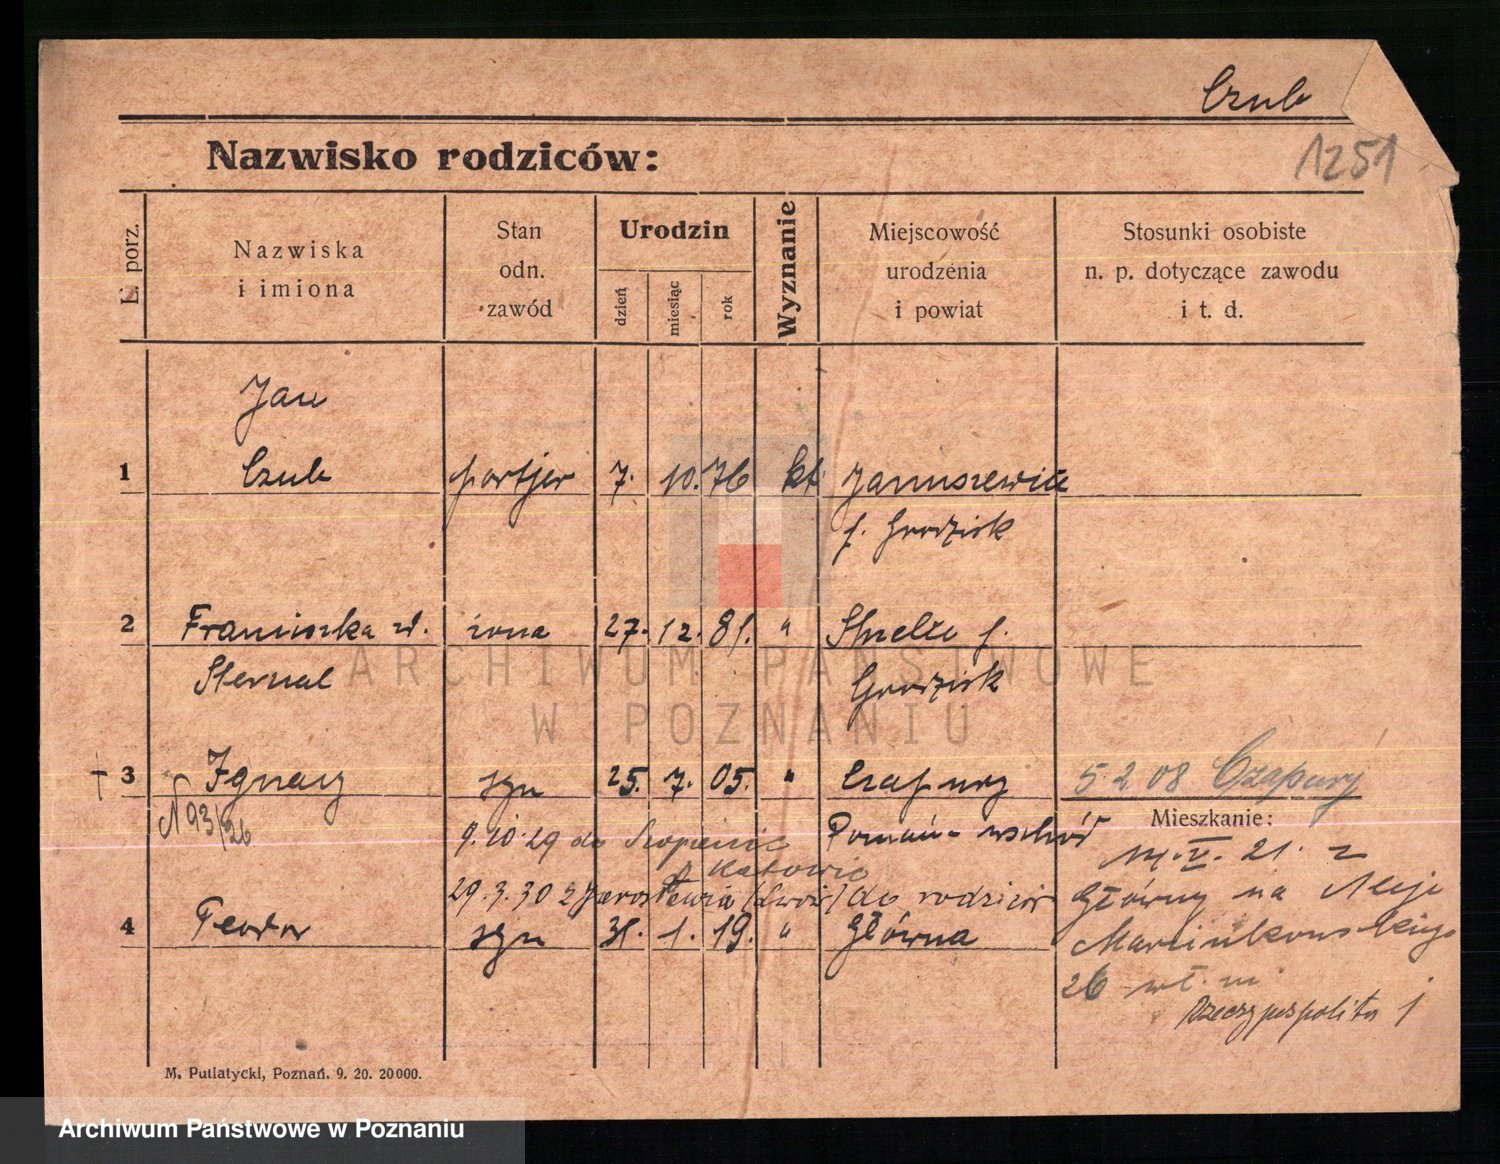 Czub
1251
Nazwisko rodziców:
L. porz.
Nazwiska
i imiona
Stan
odn.
zawód
Urodzin
dzień
miesiąc
rok
Wyznanie
Miejscowość
urodzenia
i powiat
Stosunki osobiste
n. p. dotyczące zawodu
i t. d.
Jan
1 Czub portjer 7. 10. 76 kt. Januszewice
p. Grodzisk
2 Franciszka ż. żona 27. 12. 81. " p.
Sternal Grodzisk
ARCHIWUM PAŃSTWOWE
W POZNANIU
+ 3 Ignacy syn 25. 7. 05. " Czapury 5.2 08 Czapury
N 93/26
Poznań-wschód
Mieszkanie:
9.10.29 do Szopienic
p. Katowic
21. z
29.3.30 z Jarosławia (Lwów) do rodziców
Główny na Aleje
4 Teodor syn 31. 1. 19. " Główna
Marcinkowskiego
26
Rzeczypospolita 1
M. Putiatycki, Poznań. 9. 20. 20000.
Archiwum Państwowe w Poznaniu